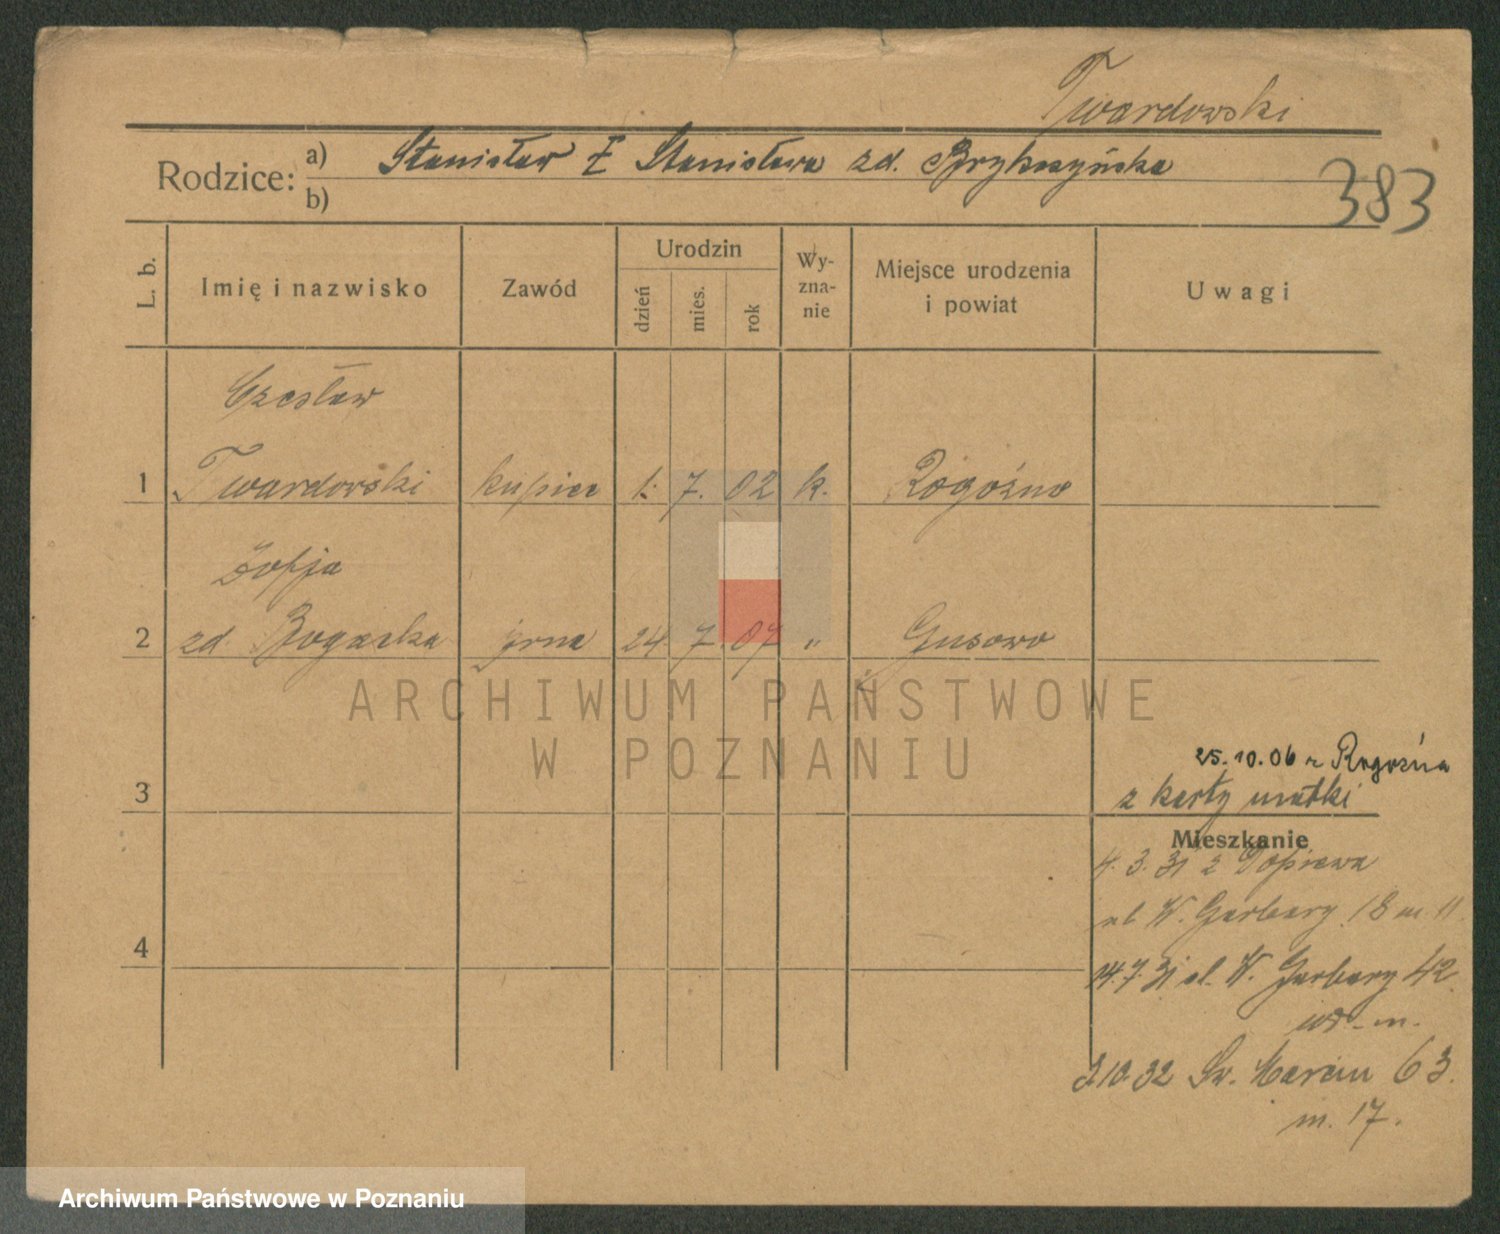 Twardowski
Rodzice: a) Stanisław Ł Stanisława zd. Brykszyńska
b)
383
L. b.
Imię i nazwisko
Zawód
Urodzin
dzień
mies.
rok
Wy-
zna-
nie
Miejsce urodzenia
i powiat
Uwagi
Czesław
1 Twardowski kupiec 1. 7. 02 k. Rogoźno
Zofja
2 zd. Bogacka żona 24 7. 07 " Gusowo
ARCHIWUM PAŃSTWOWE
W POZNANIU
25.10.06 z Rogoźna
3 z karty matki
Mieszkanie
4.3.31 z Dopiewa
ul W. Garbary 18 m. 11
4
14.7.31 ul. W. Garbary 42
m.
3.10.32 Św. Marcin 63.
m. 17.
Archiwum Państwowe w Poznaniu